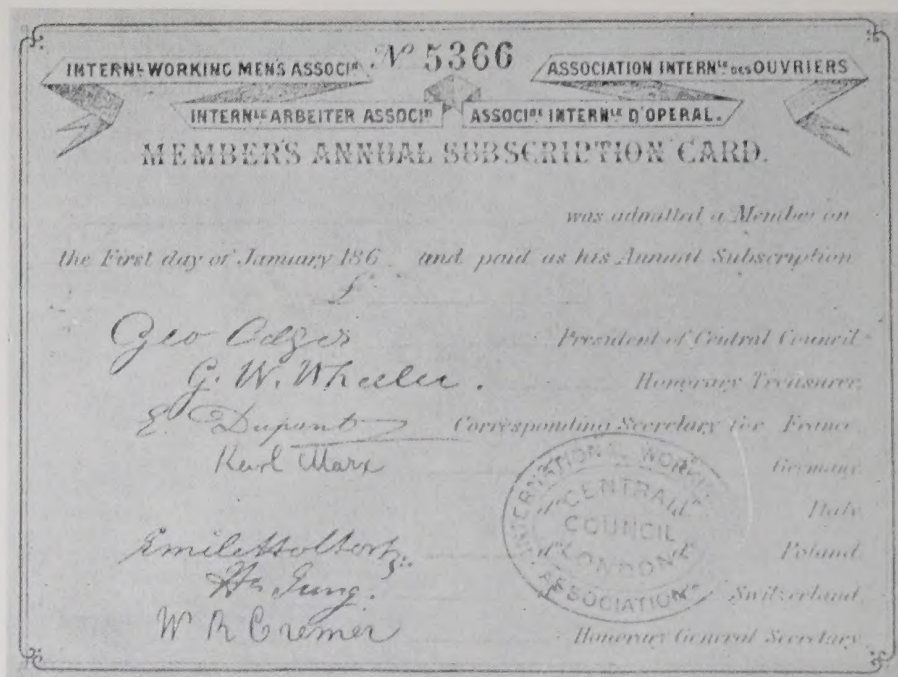 Nº 5366
INTERNL WORKING MEN'S ASSOCIN
ASSOCIATION INTERNLE DES OUVRIERS
INTERNLE ARBEITER ASSOCIN
ASSOCINE INTERNLE D'OPERAI.
MEMBER'S ANNUAL SUBSCRIPTION CARD.
was admitted a Member on
the First day of January 186 and paid as his Annual Subscription
£
Geo Odger President of Central Council
G. W. Wheeler. Honorary Treasurer,
E. Dupont Corresponding Secretary for France
Karl Marx Germany
Italy
Emile Holtorp d. Poland.
Hn Jung. Switzerland,
W R Cremer Honorary General Secretary
INTERNATIONAL WORKING ASSOCIATION
CENTRAL
COUNCIL
LONDON